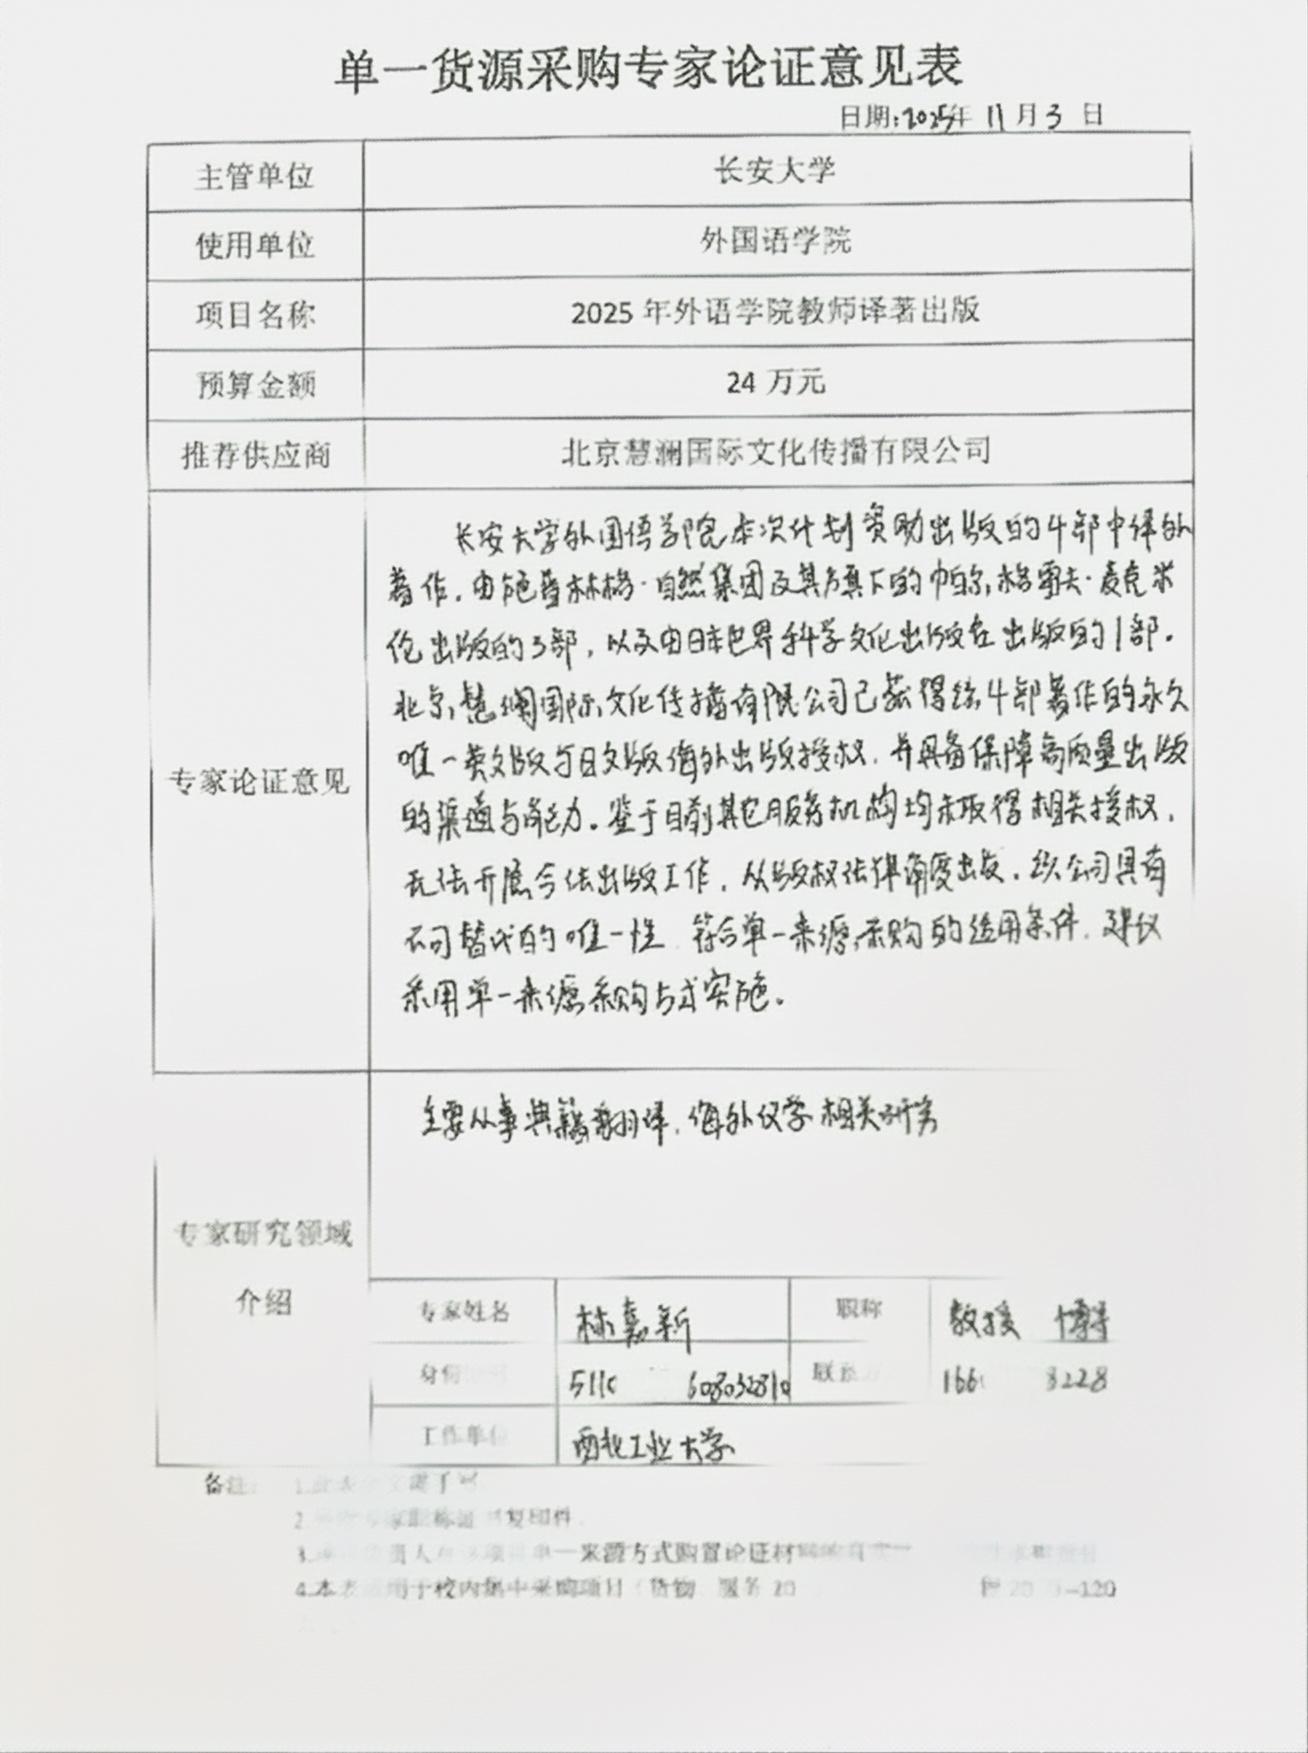 单一货源采购专家论证意见表
日期:2025年 11月 3 日
主管单位 长安大学
使用单位 外国语学院
项目名称 2025 年外语学院教师译著出版
预算金额 24 万元
推荐供应商 北京慧澜国际文化传播有限公司
专家论证意见
长安大学外国语学院本次计划资助出版的4部中译外
著作,由施普林格·自然集团及其旗下的帕尔格雷夫·麦克米
伦出版的3部,以及由日本世界科学文化出版社出版的1部。
北京慧澜国际文化传播有限公司已获得该4部著作的永久
唯一英文版与日文版海外出版授权,并具备保障高质量出版
的渠道与能力。鉴于目前其它服务机构均未取得相关授权,
无法开展合法出版工作,从版权法律角度出发,该公司具有
不可替代的唯一性,符合单一来源采购的适用条件,建议
采用单一来源采购方式实施。
专家研究领域
介绍
主要从事典籍翻译,海外汉学相关研究
专家姓名 林嘉新 职称 教授 博导
身份 511 608032810 联系 166 8228
工作单位 西北工业大学
备注:
2. 复印件
3. 责人 单一来源方式购置论证材
4.本表 用于校内集中采购项目(货物 服务 20 20 -120